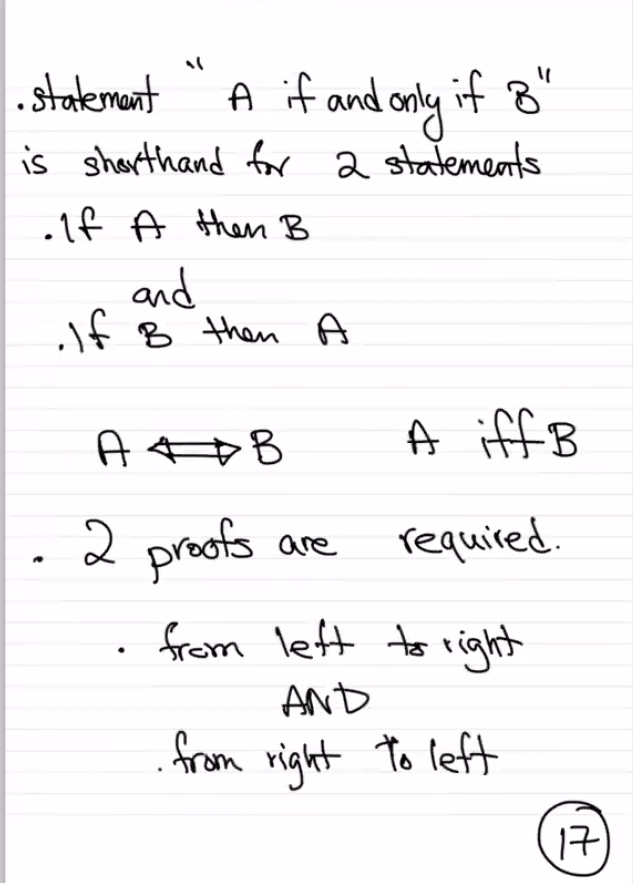 . statement "A if and only if B"
is shorthand for 2 statements
. If A then B
and
. If B then A
A ⟺ B A iff B
. 2 proofs are required.
. from left to right
AND
. from right to left
17